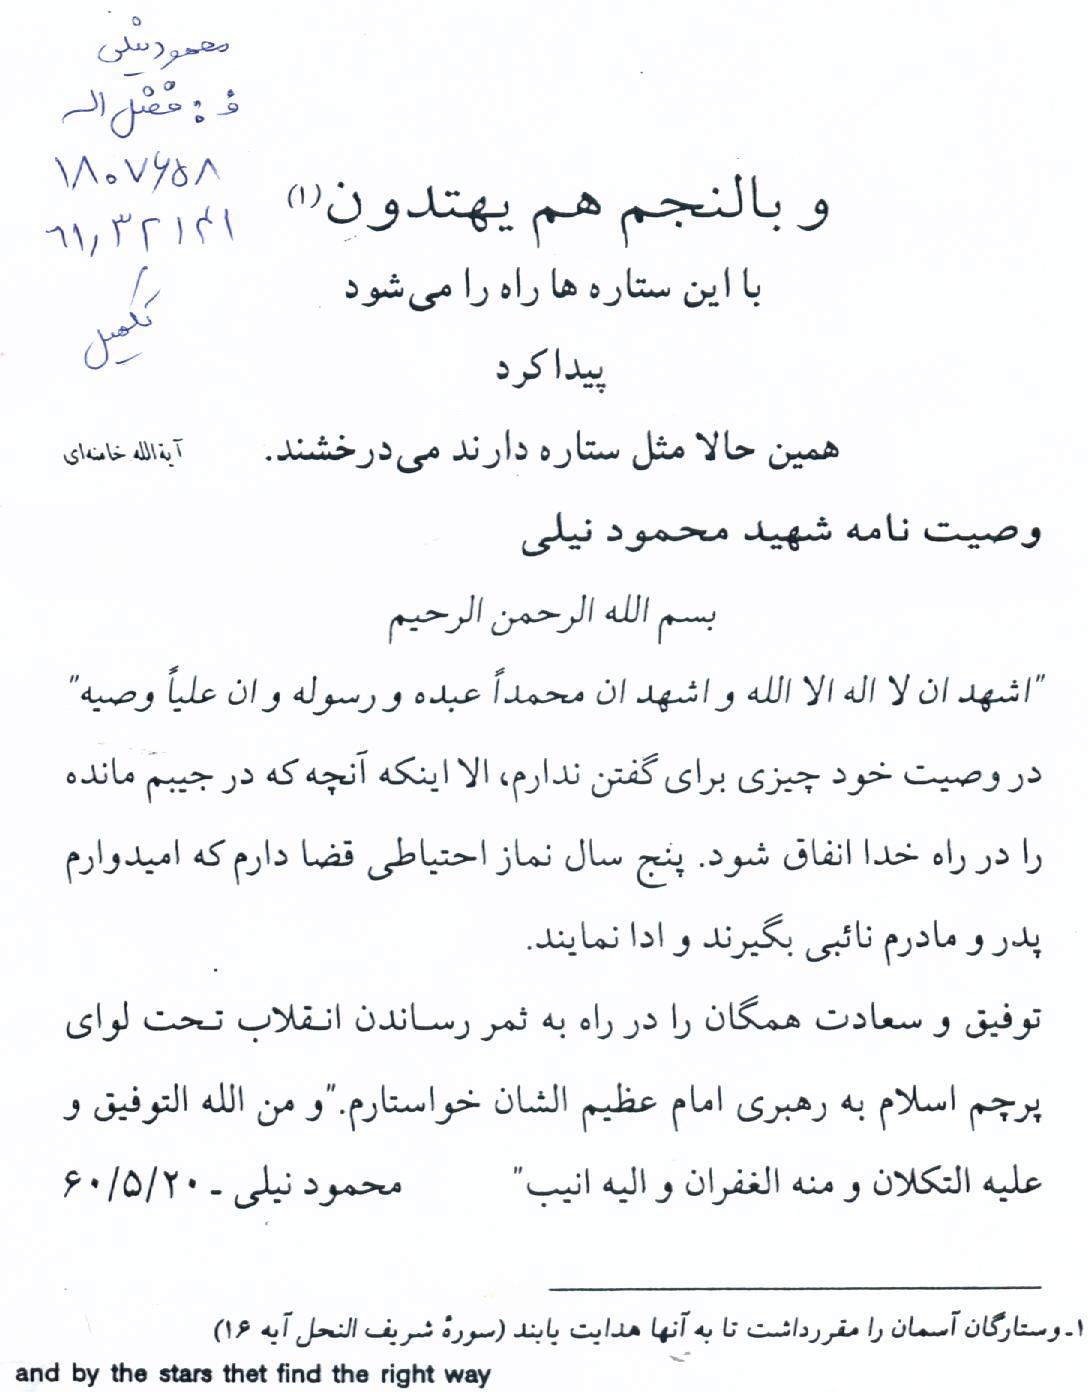 محمود نیلی
ف: فضل اله
۱۸۰۷۶۵۸
تکمیل
و بالنجم هم یهتدون(۱)
با این ستاره ها راه را می‌شود
پیدا کرد
همین حالا مثل ستاره دارند می‌درخشند. آیةالله خامنه‌ای
وصیت نامه شهید محمود نیلی
بسم الله الرحمن الرحیم
"اشهد ان لا اله الا الله و اشهد ان محمداً عبده و رسوله و ان علیاً وصیه"
در وصیت خود چیزی برای گفتن ندارم، الا اینکه آنچه که در جیبم مانده
را در راه خدا انفاق شود. پنج سال نماز احتیاطی قضا دارم که امیدوارم
پدر و مادرم نائبی بگیرند و ادا نمایند.
توفیق و سعادت همگان را در راه به ثمر رساندن انقلاب تحت لوای
پرچم اسلام به رهبری امام عظیم الشان خواستارم."و من الله التوفیق و
علیه التکلان و منه الغفران و الیه انیب" محمود نیلی ـ ۶۰/۵/۲۰
۱ـ وستارگان آسمان را مقررداشت تا به آنها هدایت یابند (سورهٔ شریف النحل آیه ۱۶)
and by the stars thet find the right way